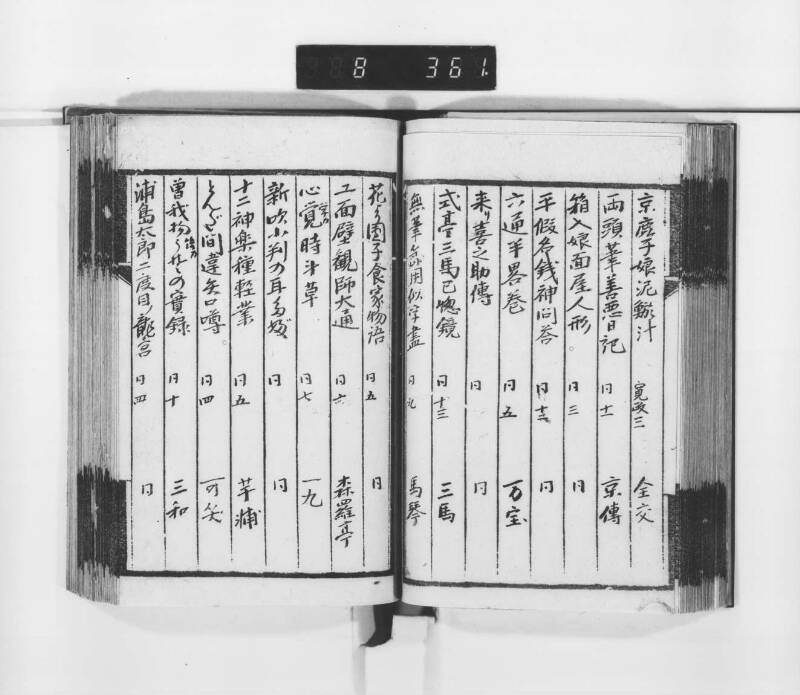 8 361.
京鹿子娘泥鰌汁 寛政三 全交
両頭筆善悪日記 同十一 京傳
箱入娘面屋人形。 同三 同
平假名銭神問答 同十二 同
六通半畧巻 同五 万宝
来り喜之助傳 同 同
式亭三馬己惚鏡 同十三 三馬
無筆節用似字盡 同九 馬琴
花より團子食家物語 同五 同
工面壁観師大通 同六 森羅亭
心覚時斗草 同七 一九
新吹小判の耳たぶ 同 同
十二神楽種軽業 同五 芊浦
とんだ間違矢口噂。 同四 一可笑
曽我物 の實録 同十 三和
浦島太郎二度目ノ龍宮 同四 同